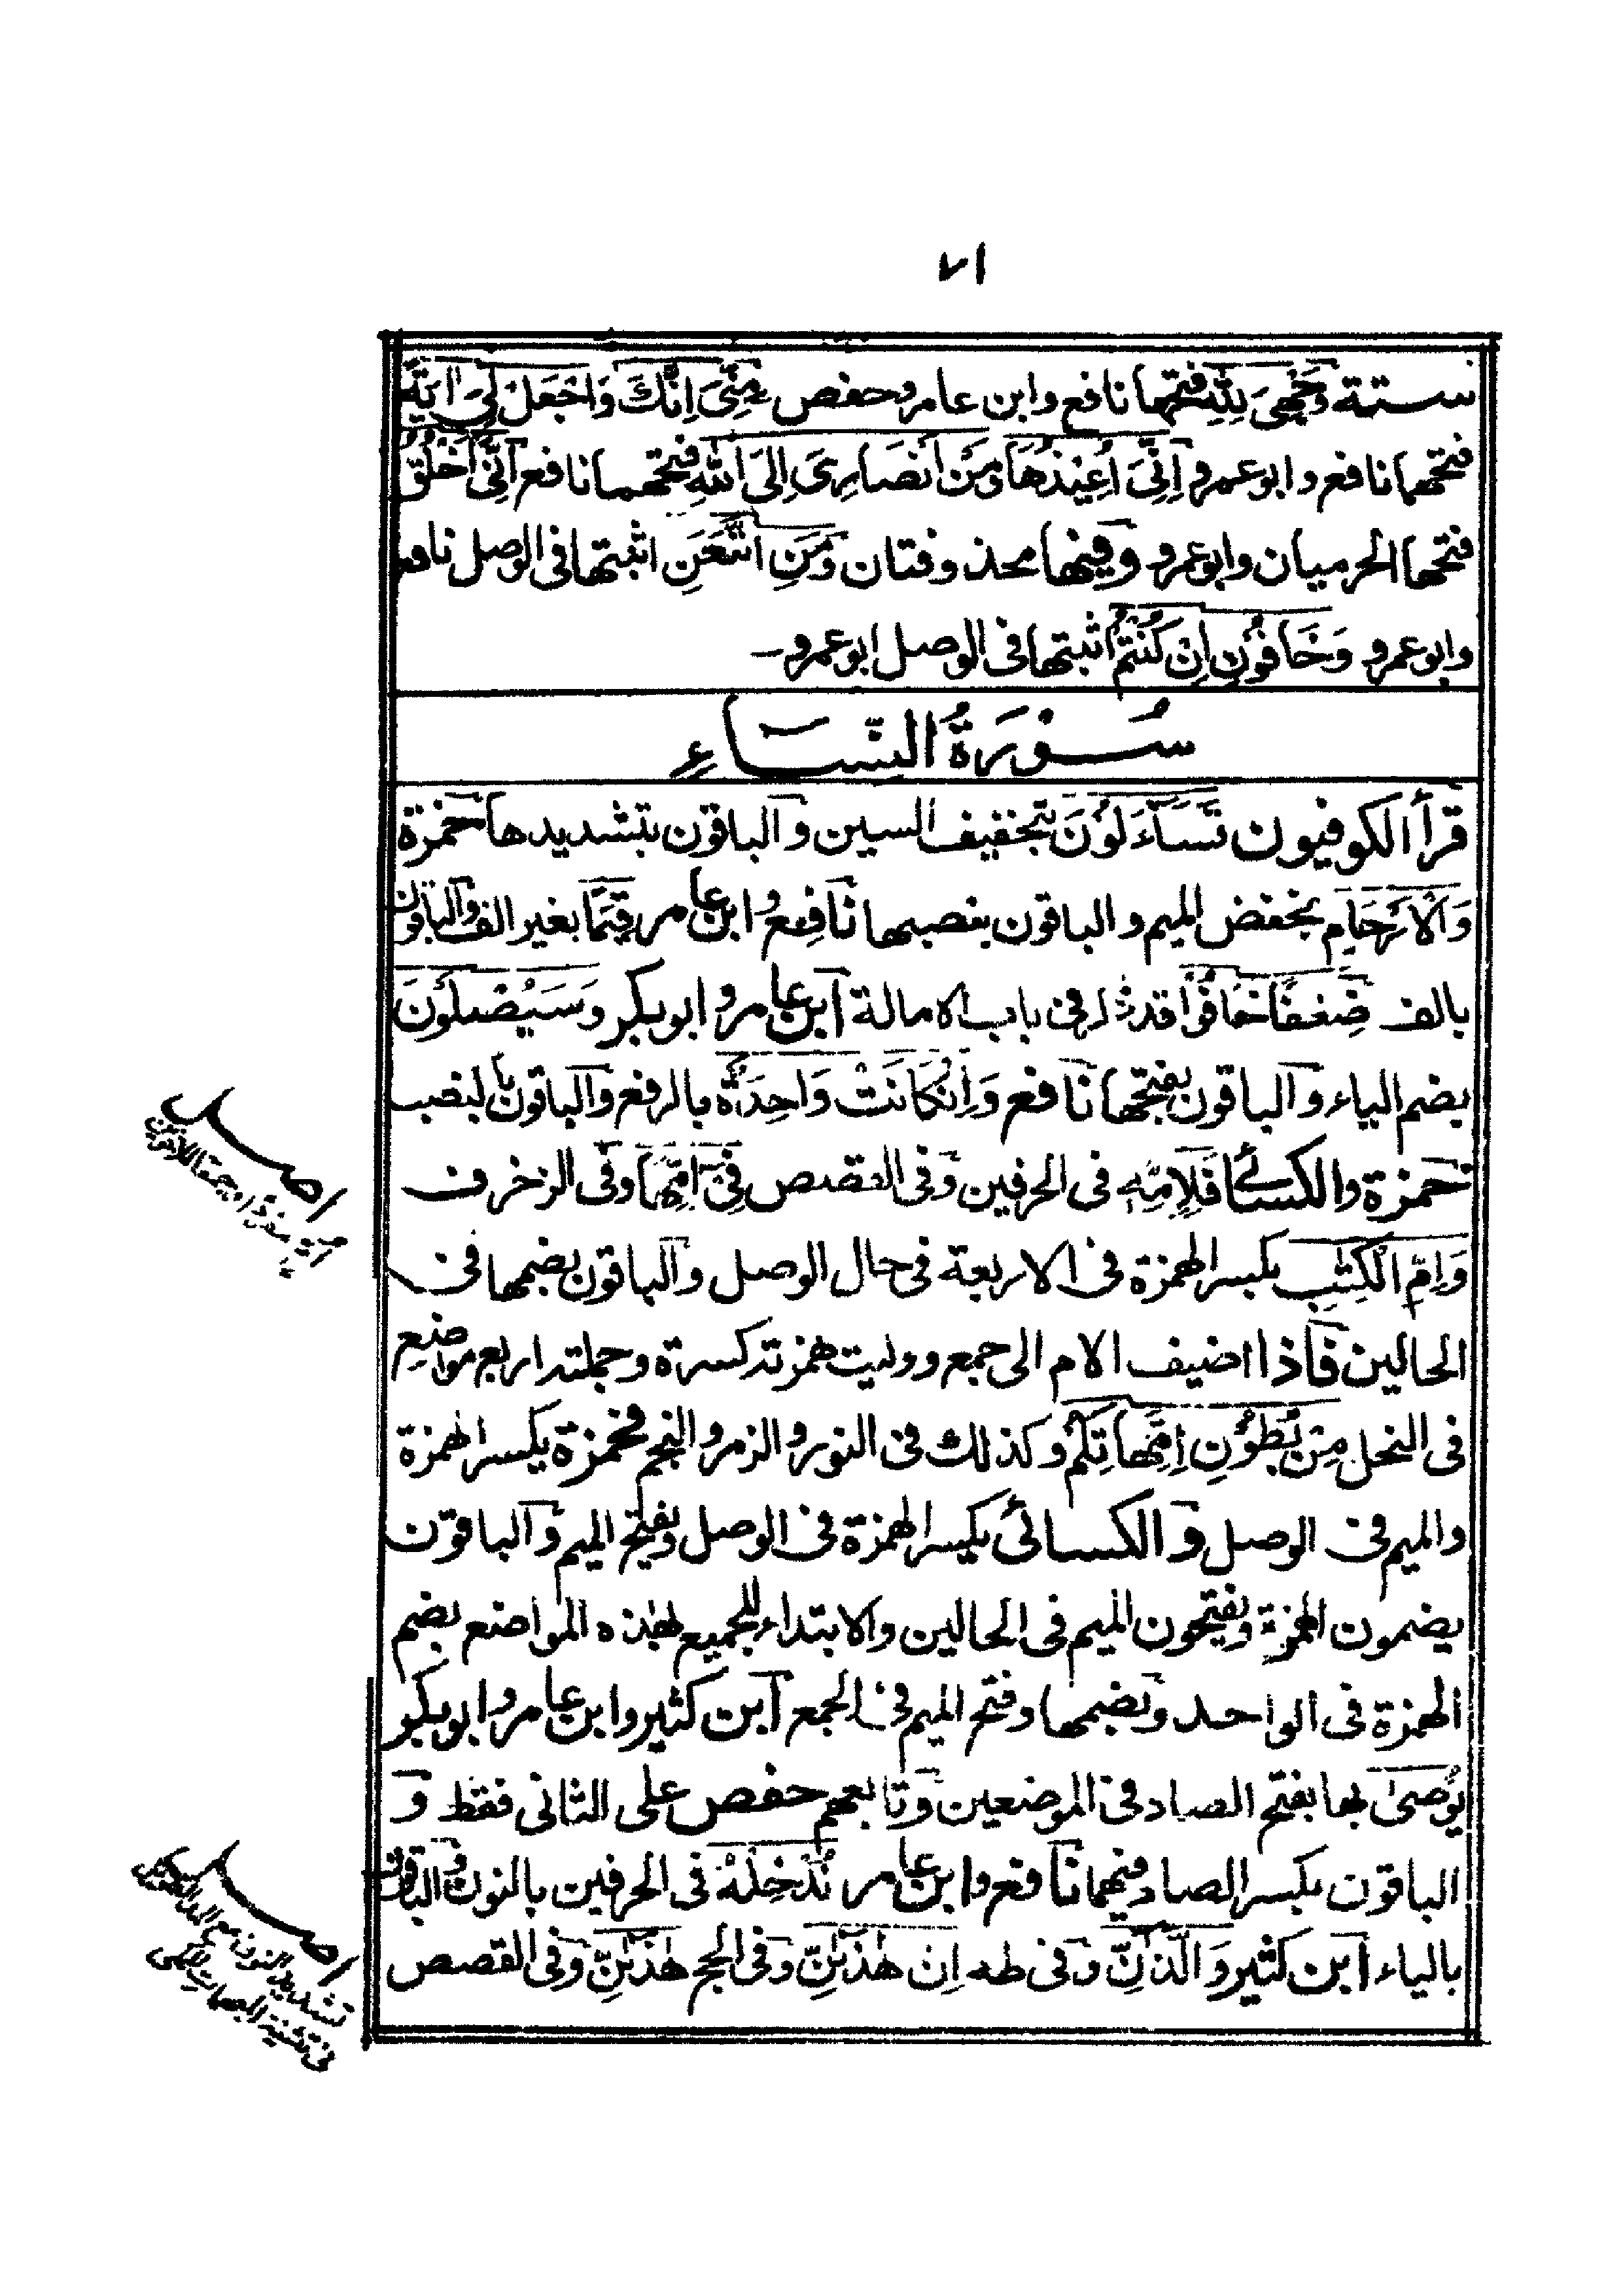 ٧١
ستة وَجْهِيَ لِلّٰهِ فتحها نافع وابن عامر وحفص مِنِّيَ اِنَّكَ وَاجْعَلْ لِيَ اٰيَةً
فتحهما نافع و ابو عمرو اِنِّيَ اُعِيْذُهَا وَمَنْ اَنْصَارِيَ اِلَى اللّٰهِ فتحهما نافع اَنِّيَ اَخْلُقُ
فتحها الحرميان وابو عمرو وفيها محذوفتان وَمَنِ اتَّبَعَنِ اثبتها فى الوصل نافع
وابو عمرو وَخَافُوْنِ اِنْ كُنْتُمْ اثبتها فى الوصل ابو عمرو ـ
سُوْرَةُ النِّسَاءِ
قرأ الكوفيون تَسَاۤءَلُوْنَ بتخفيف السين و الباقون بتشديدها حمزة
وَالْاَرْحَامِ بخفض الميم و الباقون بنصبها نافع و ابن عامر قِيَمًا بغير الف والباقون
بالف ضِعٰفًا خَافُوْا قد ذكر فى باب الامالة ابن عامر و ابو بكر وَسَيُصْلَوْنَ
بضم الياء و الباقون بفتحها نافع وَاِنْ كَانَتْ وَاحِدَةٌ بالرفع والباقون بالنصب
حمزة والكسائى فَلِاِمِّهِ فى الحرفين وفى القصص فِىْ اِمِّهَا وفى الزخرف
وَاِمِّ الْكِتٰبِ بكسر الهمزة فى الاربعة فى حال الوصل والباقون بضمها فى
الحالين فاذا اضيف الام الى جمع ووليت همزته كسرة وجملته اربع مواضع
فى النحل مِنْ بُطُوْنِ اِمَّهَاتِكُمْ وكذلك فى النور و الزمر و النجم فحمزة بكسر الهمزة
والميم فى الوصل و الكسائى بكسر الهمزة فى الوصل وبفتح الميم و الباقون
يضمون الهمزة ويفتحون الميم فى الحالين والابتداء للجميع لهٰذه المواضع بضم
الهمزة فى الواحد وبضمها وفتح الميم فى الجمع ابن كثير وابن عامر وابو بكر
يُوْصٰى بها بفتح الصاد فى الموضعين و تابعهم حفص على الثانى فقط و
الباقون بكسر الصاد فيهما نافع و ابن عامر نُدْخِلْهُ فى الحرفين بالنون والباقون
بالياء ابن كثير وَالَّذٰنِّ وفى طه اِن هٰذٰنِّ وفى الحج هٰذٰنِّ وفى القصص
اصل
اصل
تشديد النون مع المد
فى تثنية المبهمات للمكى